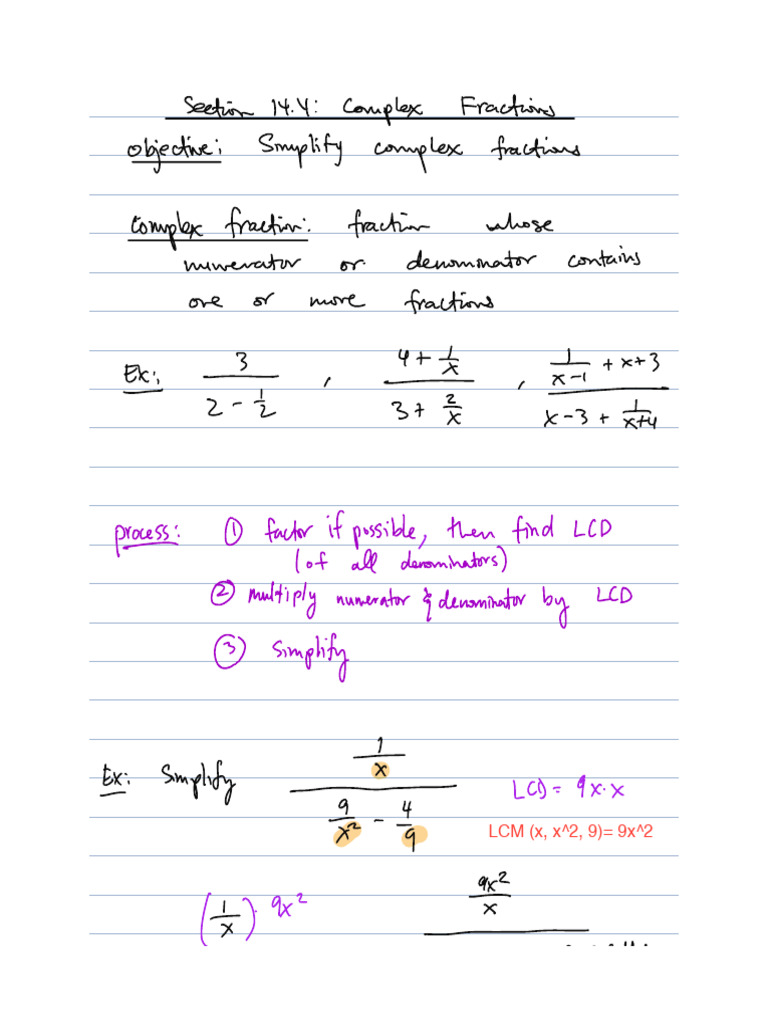 Section 14.4: Complex Fractions
Objective: Simplify complex fractions
Complex fraction: fraction whose
numerator or denominator contains
one or more fractions
Ex: 3/(2 - 1/2) , (4 + 1/x)/(3 + 2/x) , (1/(x-1) + x+3)/(x-3 + 1/(x+4))
process: ① factor if possible, then find LCD
(of all denominators)
② multiply numerator & denominator by LCD
③ Simplify
Ex: Simplify (1/x)/(9/x² - 4/9) LCD = 9x·x
LCM (x, x^2, 9)= 9x^2
(1/x)·9x² 9x²/x